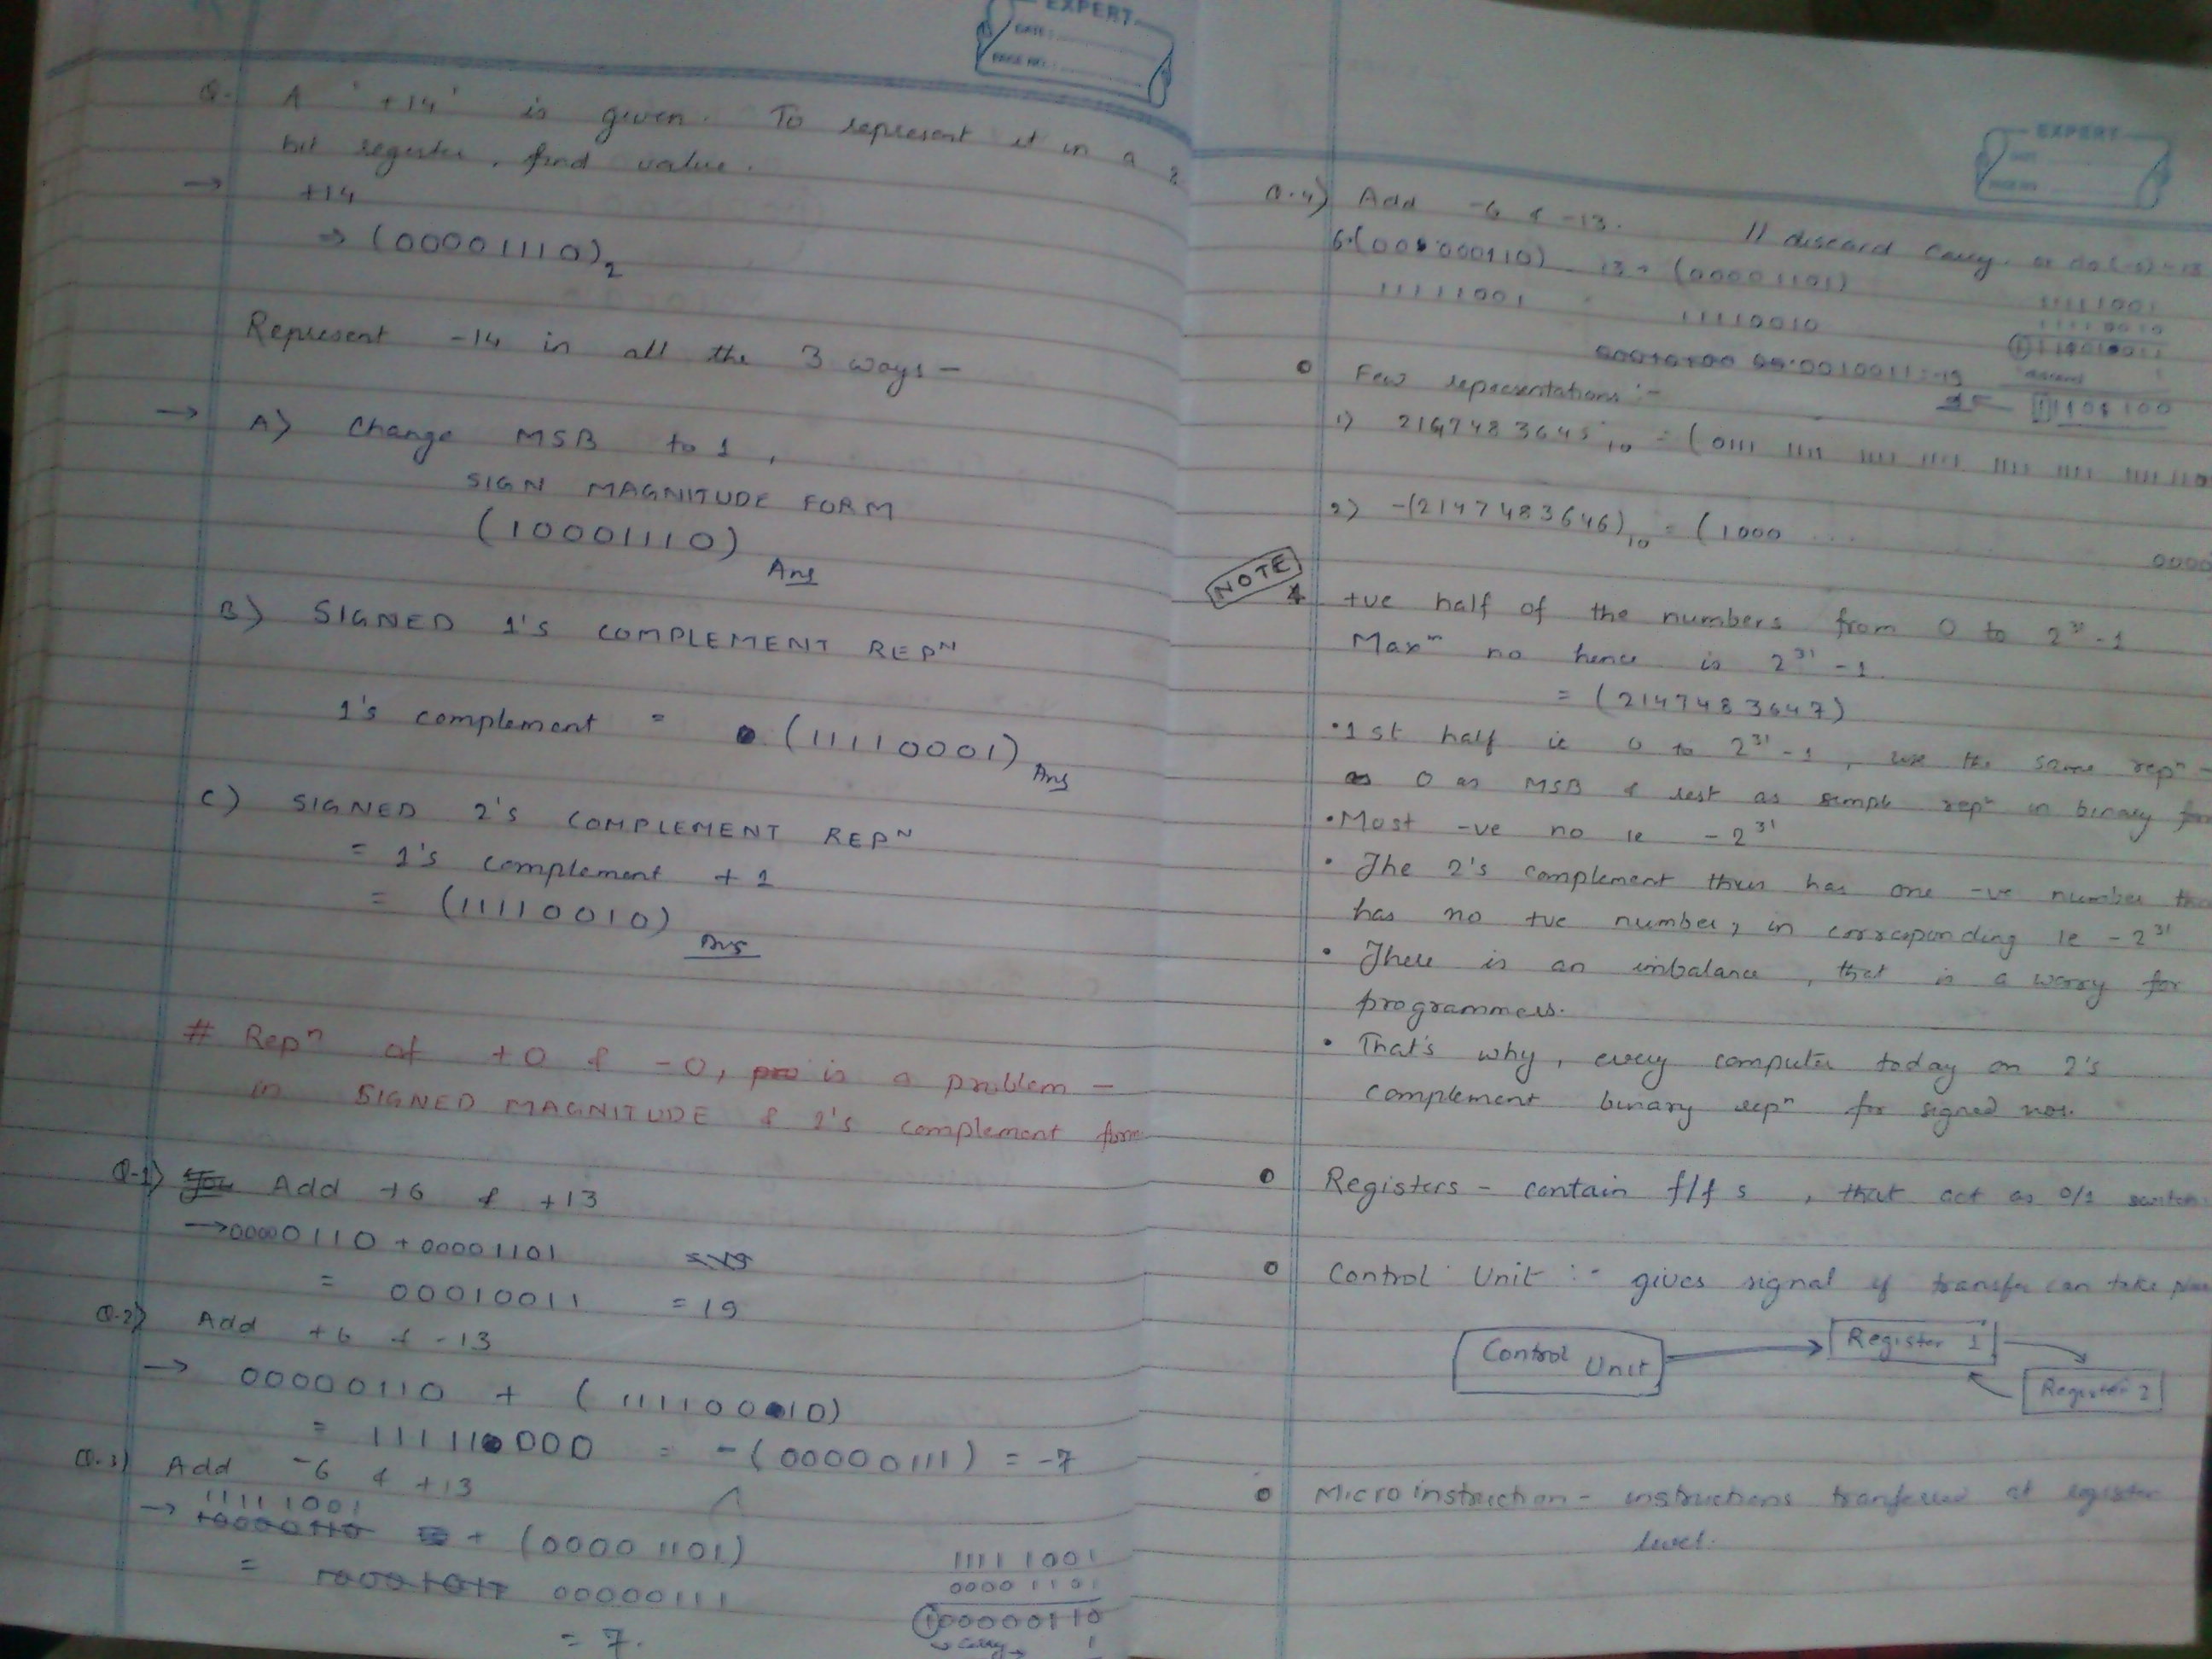 EXPERT
DATE :
PAGE NO. :
Q. A '+14' is given. To represent it in a 8
bit register, find value.
→ +14
⇒ (00001110)₂
Represent -14 in all the 3 ways -
→ A) Change MSB to 1,
SIGN MAGNITUDE FORM
(10001110) Ans
B) SIGNED 1's COMPLEMENT REPᴺ
1's complement = (11110001) Ans
C) SIGNED 2's COMPLEMENT REPᴺ
= 1's complement + 1
= (11110010)
Ans
# Repⁿ of +0 & -0, is a problem -
in SIGNED MAGNITUDE & 1's complement form
Q.1) Add +6 & +13
→ 00000110 + 00001101
= 00010011 = 19
Q.2) Add +6 & -13
→ 00000110 + (11110010)
= 11111000 = -(00000111) = -7
Q.3) Add -6 & +13
→ 11111001 + (00001101)
= 00000111
= 7.
1111 1001
0000 1101
100000110
Carry → 1
EXPERT
DATE
PAGE NO.
Q.4) Add -6 & -13. // discard carry.
13 = (00001101)
11111001
11110010
11111001
11110010
0010011 = -19
Few representations :-
1) 2147483645₁₀ = (0111 1111 1111 1111 1111 1111 1111 110
2) -(2147483646)₁₀ = (1000 ...
0000
NOTE
+ve half of the numbers from 0 to 2³¹-1
Maxᵐ no hence is 2³¹-1.
= (2147483647)
• 1st half ie 0 to 2³¹-1, use the same repⁿ -
0 as MSB & rest as simple repⁿ in binary
• Most -ve no ie -2³¹
• The 2's complement thus has one -ve number
has no +ve number, in corresponding ie -2³¹
• There is an imbalance, that is a worry for
programmers.
• That's why, every computer today on 2's
complement binary repⁿ for signed nos.
Registers - contain f/f s, that act as 0/1
Control Unit :- gives signal if transfer can take
Control Unit
Register 1
Register 2
Micro instruction - instructions tranferred at register
level.